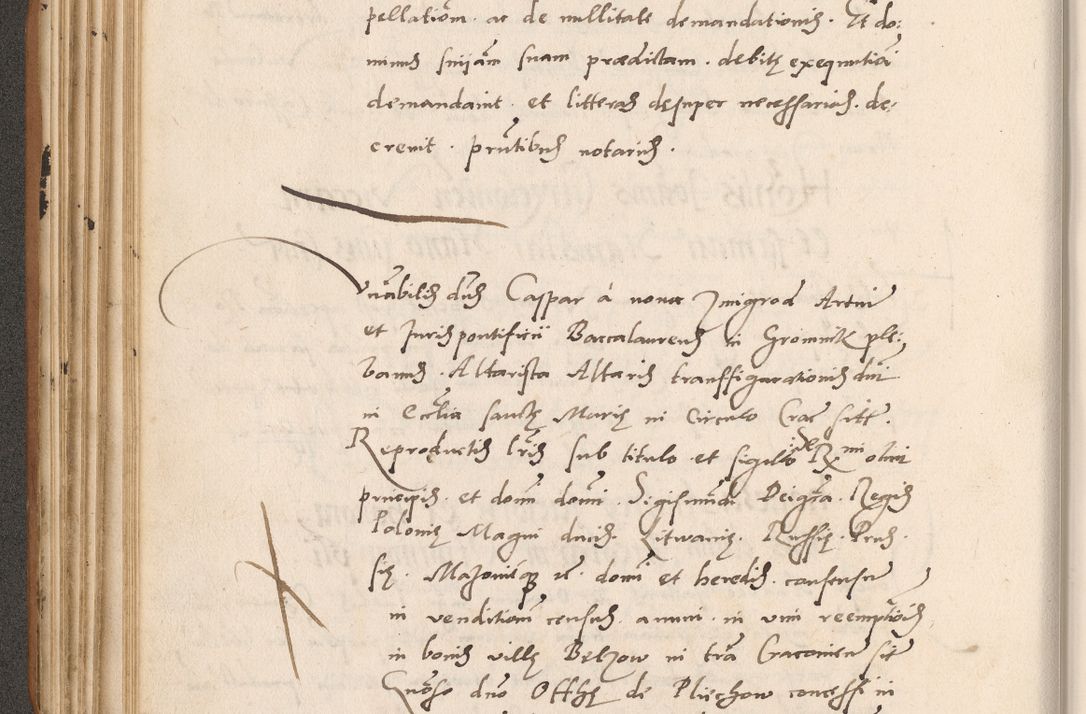 pellationem. ac de nullitate demandationis. Et do:
minus sniam suam prædictam. debitę exequutioi
demandauit. et litteras desuper necessarias. de:
creuit. pñtibus notariis.
Vnabilis dns Caspar á noua Jmigrod Artiu
et Juris pontificii Baccalaureus in Gromnik ple:
banus. Altarista Altaris transfigurationis dni
in Ecclia sanctę Marię in Circulo Crac site.
Reproductis lris sub titulo et sigillo Ser mi olim
principis. et domi domi. Sigismundi Dei gra. Regis
Polonię Magni ducis. Litwanię. Russię. Prus.
się. Mazouieque rc. domi et heredis. consensu
in venditionem census. annui. in vim reemptiois
in bonis villę Belzow in tra Cracouien sit
Gnoso dno Offkę de Pliechow concessi in